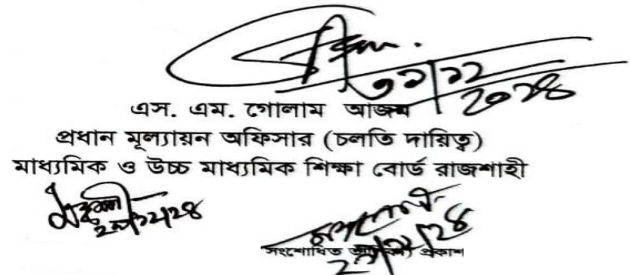 ৩১/১২
2০২৪
এস. এম. গোলাম আজম
প্রধান মূল্যায়ন অফিসার (চলতি দায়িত্ব)
মাধ্যমিক ও উচ্চ মাধ্যমিক শিক্ষা বোর্ড রাজশাহী
সংশোধিত প্রকাশ